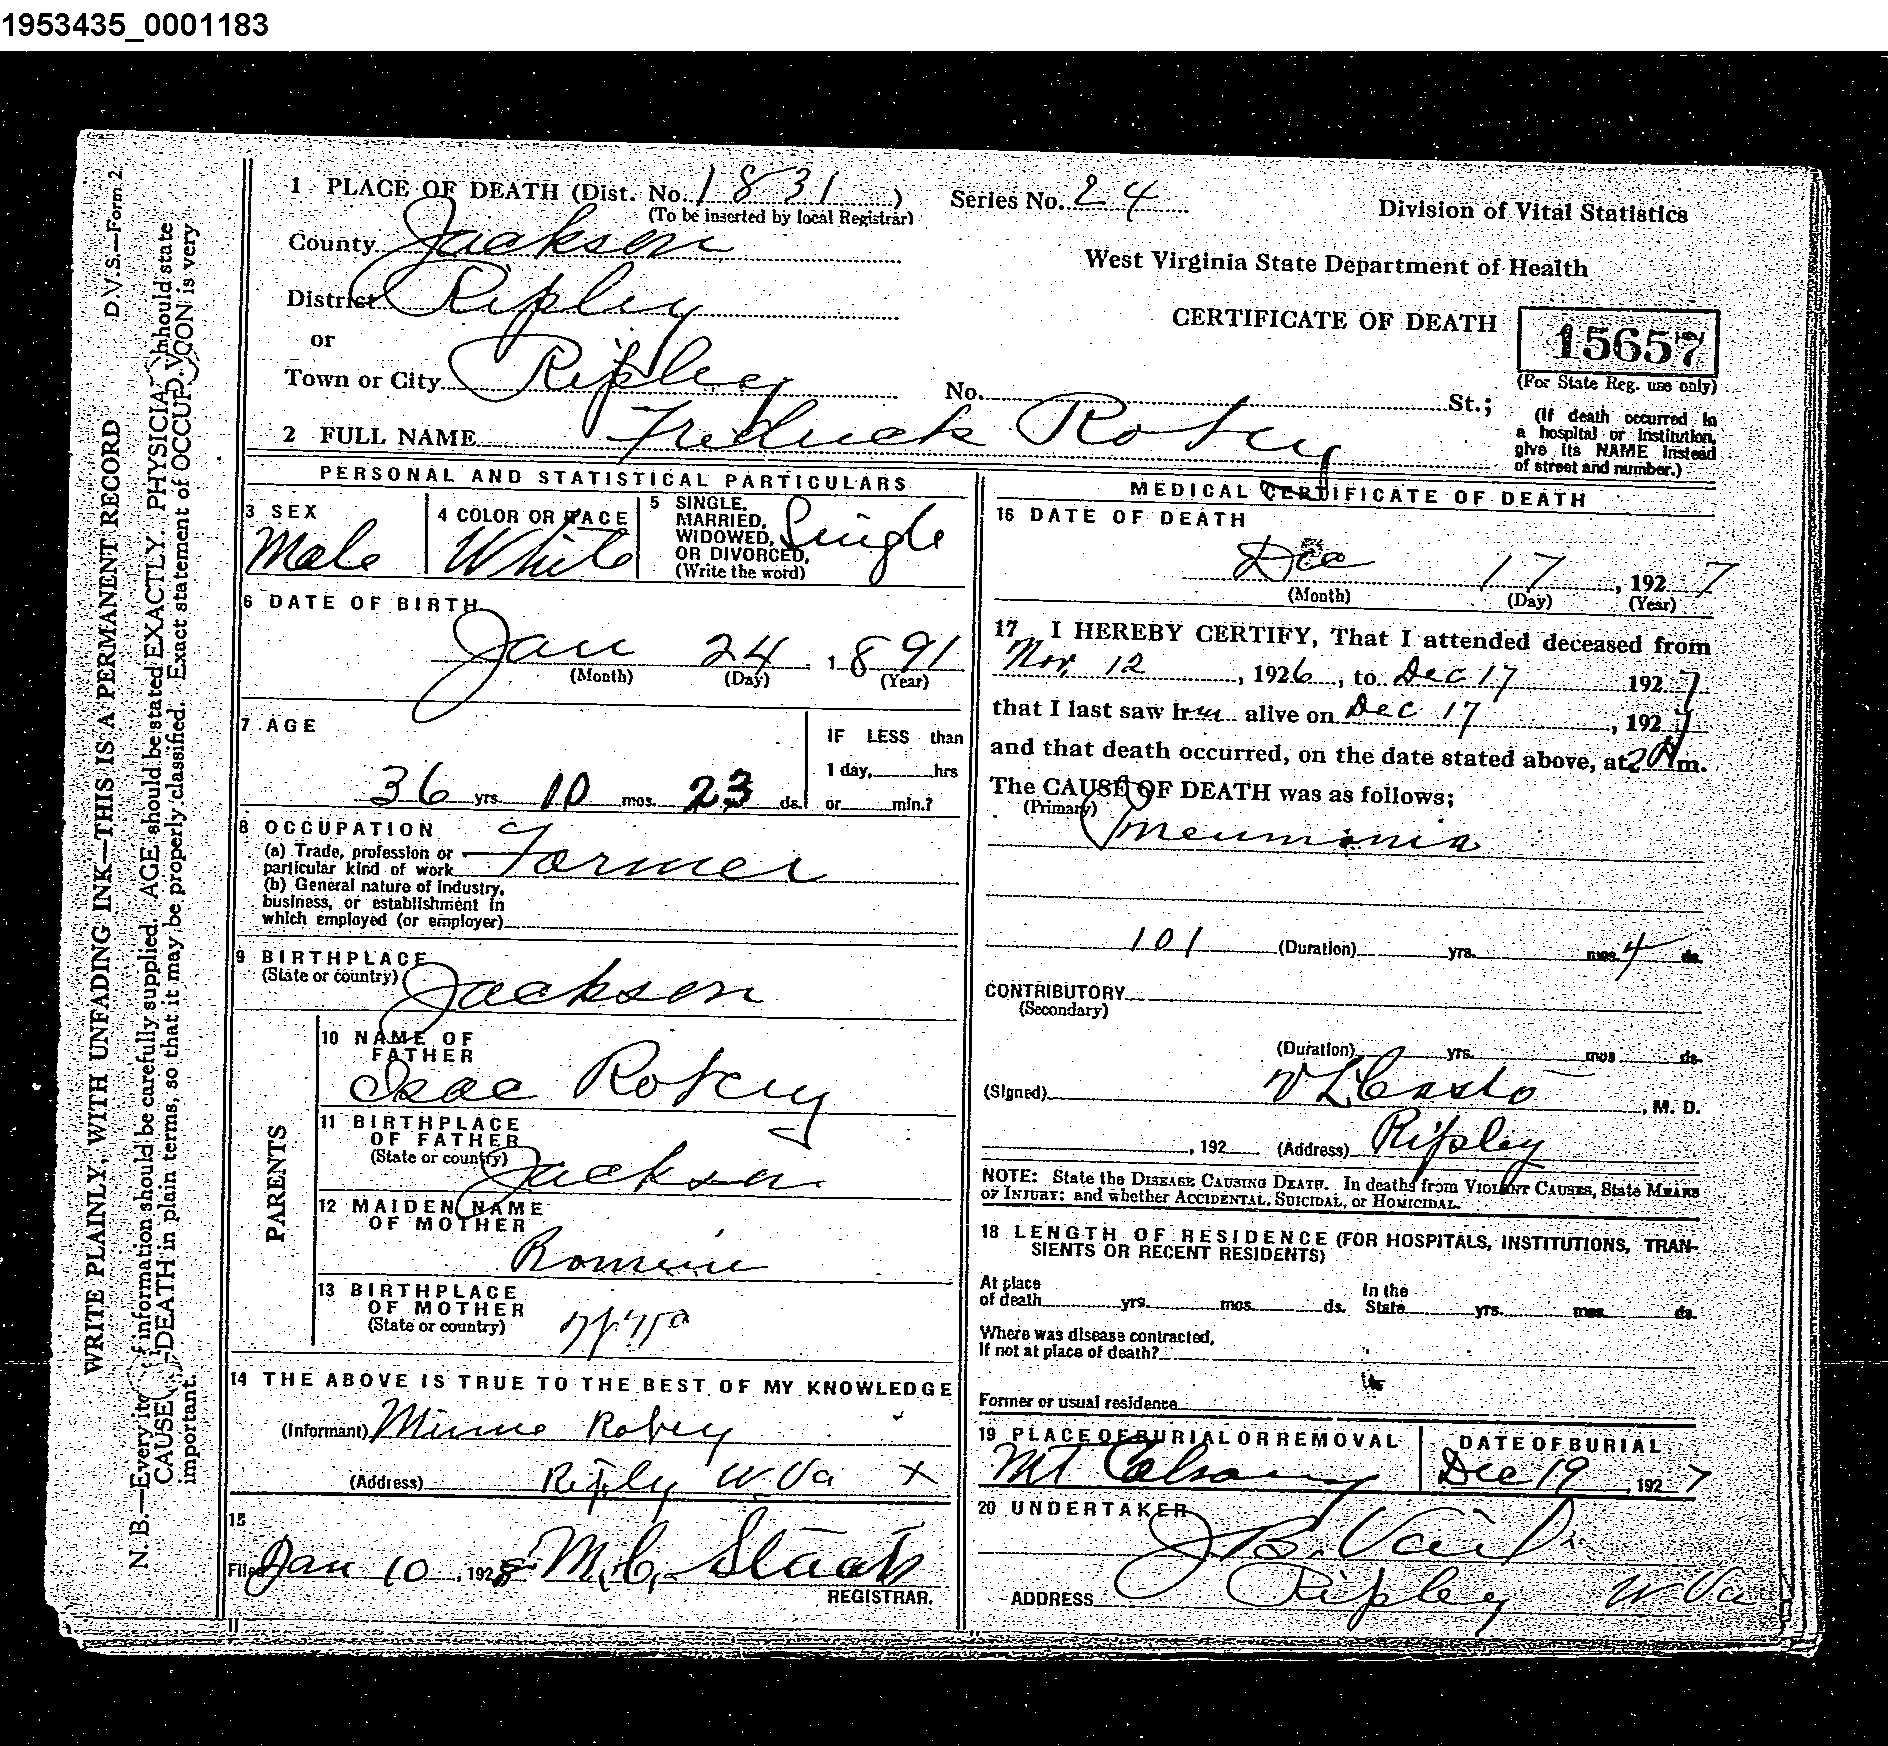 1953435_0001183
D.V.S.—Form 2.
WRITE PLAINLY, WITH UNFADING INK—THIS IS A PERMANENT RECORD
N. B.—Every ite f information should be carefully supplied. AGE should be stated EXACTLY. PHYSICIA should state
CAUSE DEATH in plain terms, so that it may be properly classified. Exact statement of OCCUP ION is very
important.
1 PLACE OF DEATH (Dist. No. 1831 )
(To be inserted by local Registrar)
Series No. 24
Division of Vital Statistics
County Jackson
West Virginia State Department of Health
District Ripley
or
CERTIFICATE OF DEATH
15657
(For State Reg. use only)
Town or City Ripley No. St.;
(If death occurred in
a hospital or institution,
give its NAME instead
of street and number.)
2 FULL NAME Fredrick Robey
PERSONAL AND STATISTICAL PARTICULARS
3 SEX
Male
4 COLOR OR RACE
White
5 SINGLE,
MARRIED,
WIDOWED,
OR DIVORCED,
(Write the word)
Single
6 DATE OF BIRTH
Jan 24 , 1891
(Month) (Day) (Year)
7 AGE
36 yrs. 10 mos. 23 ds.
IF LESS than
1 day, hrs
or min.?
8 OCCUPATION
(a) Trade, profession or
particular kind of work Farmer
(b) General nature of Industry,
business, or establishment in
which employed (or employer)
9 BIRTHPLACE
(State or country) Jackson
PARENTS
10 NAME OF
FATHER
Isac Robey
11 BIRTHPLACE
OF FATHER
(State or country) Jackson
12 MAIDEN NAME
OF MOTHER
Romine
13 BIRTHPLACE
OF MOTHER
(State or country)
14 THE ABOVE IS TRUE TO THE BEST OF MY KNOWLEDGE
(Informant) Minnie Robey
(Address) Ripley W. Va X
15
Filed Jan 10 , 1928 M. C. Staats
REGISTRAR.
MEDICAL CERTIFICATE OF DEATH
16 DATE OF DEATH
Dec 17 , 1927
(Month) (Day) (Year)
17 I HEREBY CERTIFY, That I attended deceased from
Nov. 12 , 1926 , to Dec 17 1927
that I last saw him alive on Dec 17 , 1927
and that death occurred, on the date stated above, at 2 A m.
The CAUSE OF DEATH was as follows;
(Primary)
Pneumonia
101 (Duration) yrs. mos. 4 ds.
CONTRIBUTORY
(Secondary)
(Duration) yrs. mos. ds.
(Signed) Casto , M. D.
, 192 (Address) Ripley
NOTE: State the DISEASE CAUSING DEATH. In deaths from VIOLENT CAUSES, State MEANS
OF INJURY; and whether ACCIDENTAL, SUICIDAL, or HOMICIDAL.
18 LENGTH OF RESIDENCE (FOR HOSPITALS, INSTITUTIONS, TRAN-
SIENTS OR RECENT RESIDENTS)
At place
of death yrs. mos. ds.
In the
State yrs. mos. ds.
Where was disease contracted,
If not at place of death?
Former or usual residence
19 PLACE OF BURIAL OR REMOVAL
Mt
DATE OF BURIAL
Dec 19 , 1927
20 UNDERTAKER
J B.
ADDRESS Ripley W Va